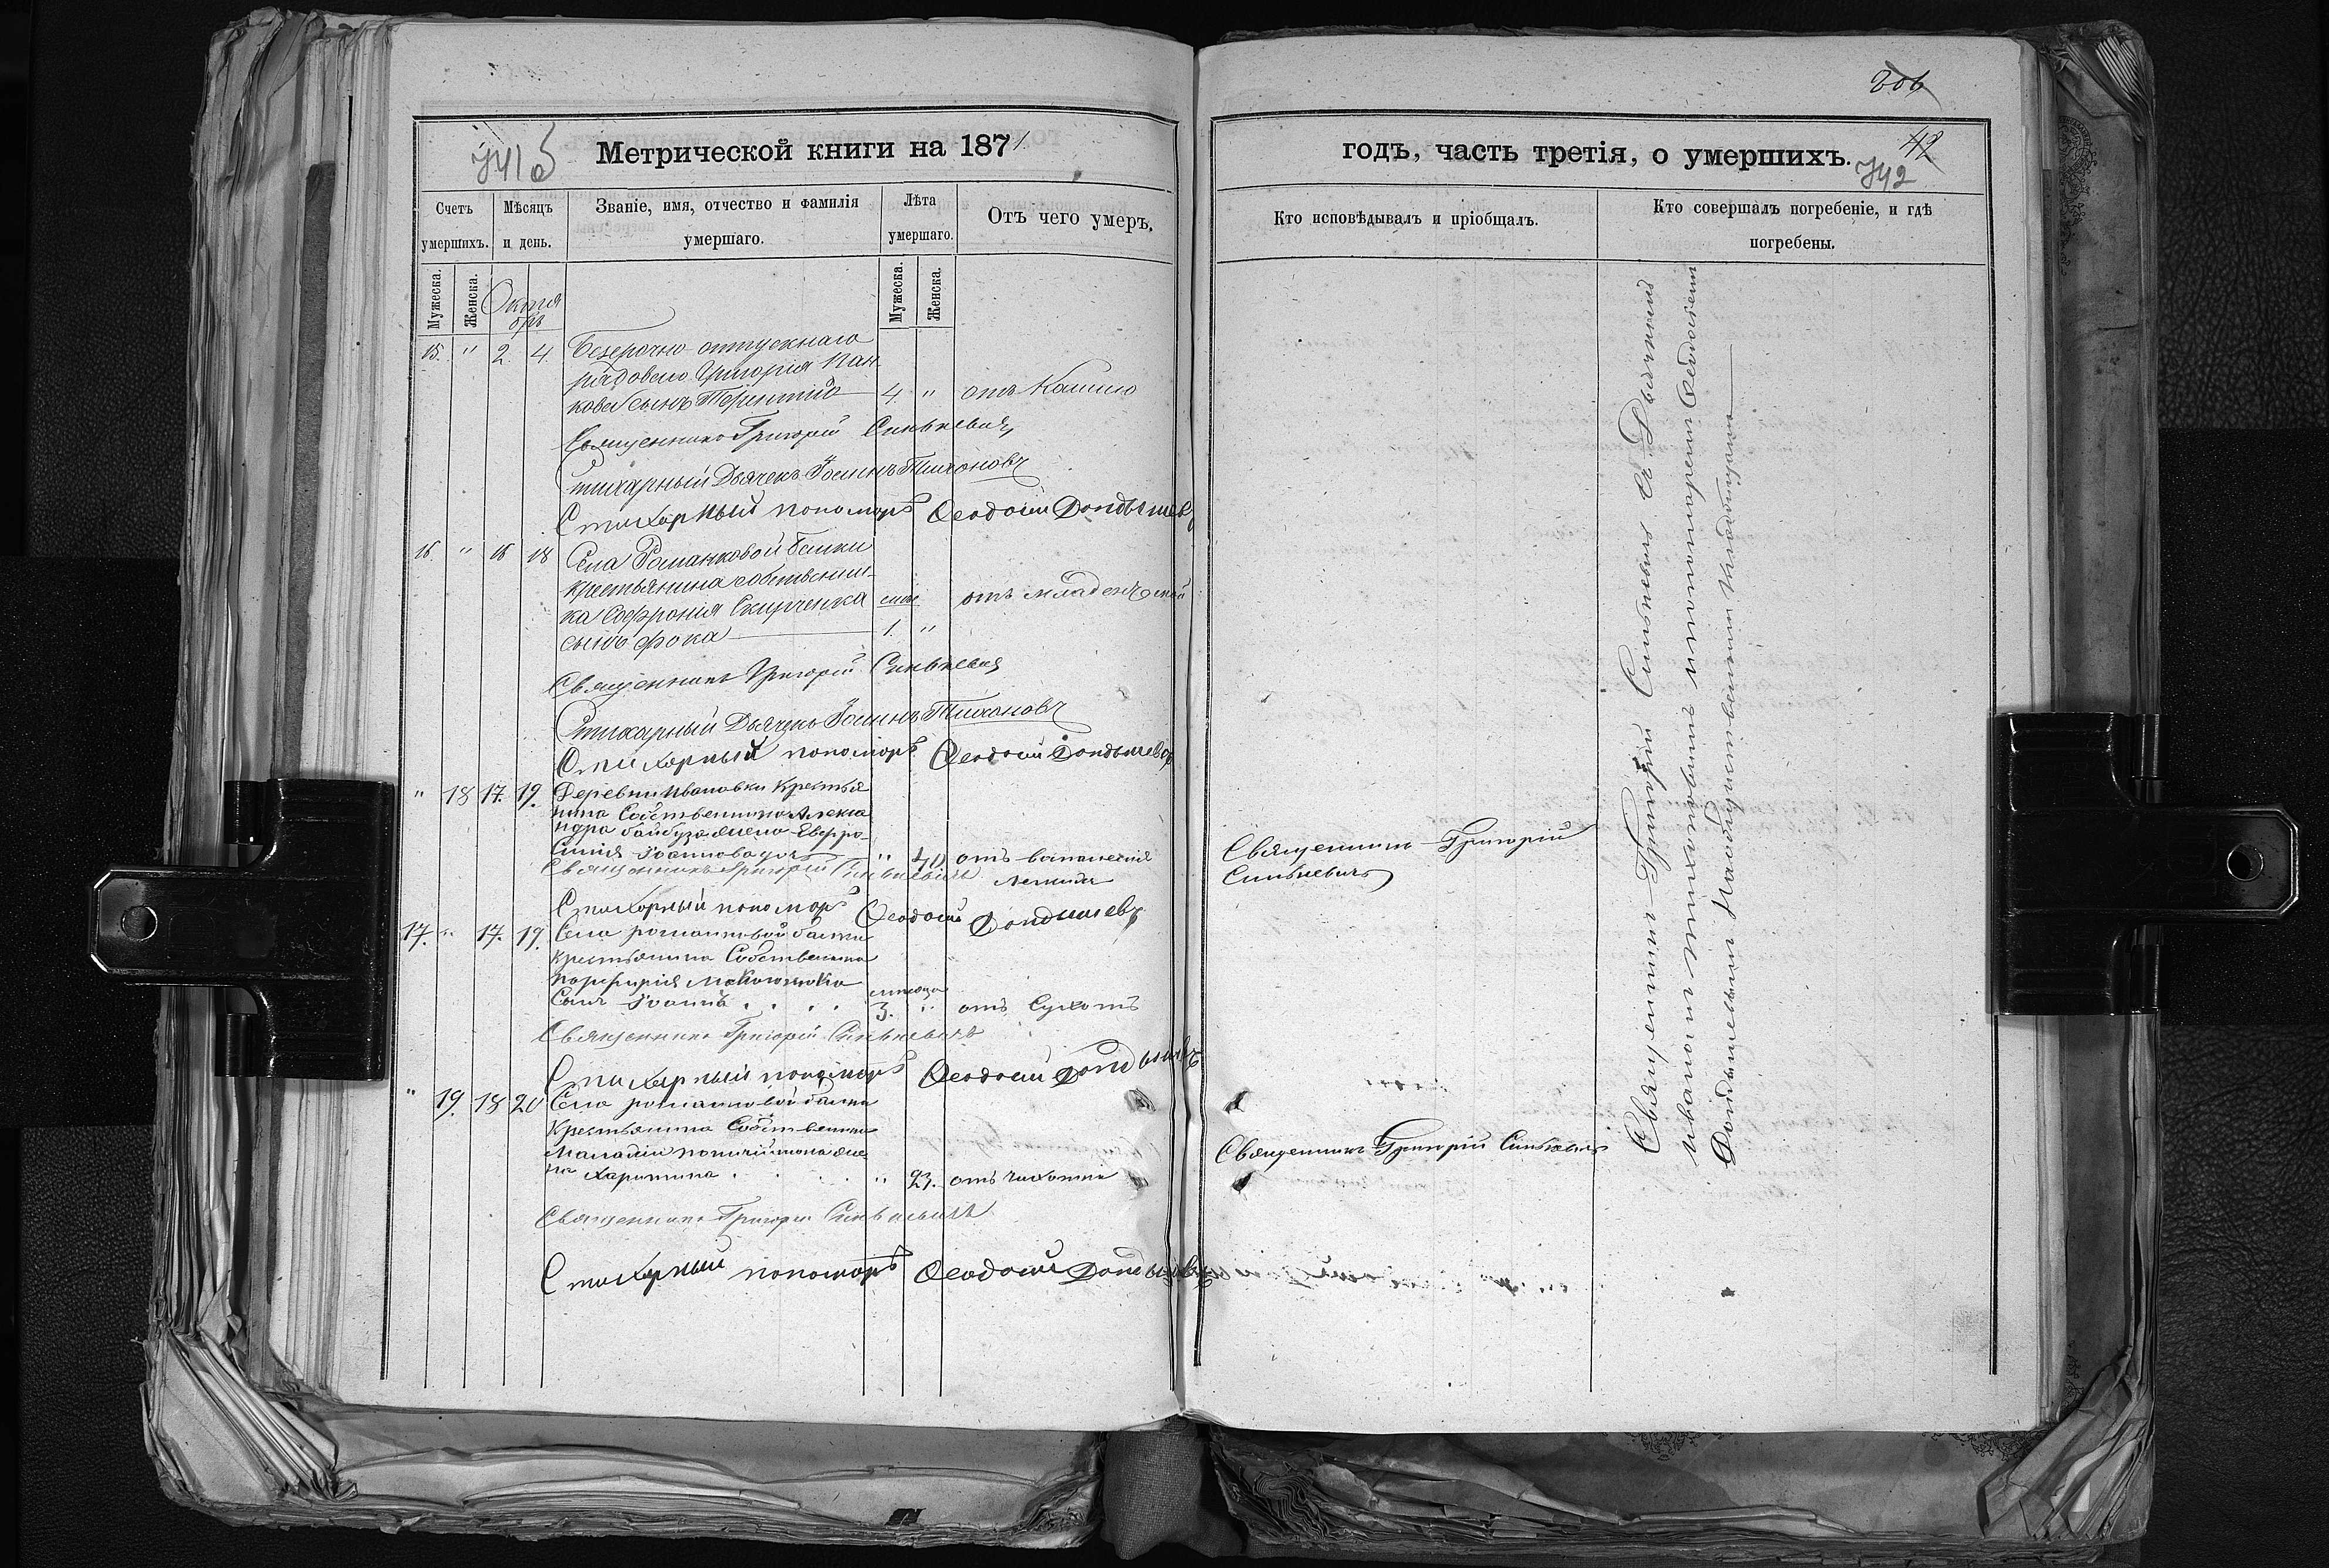 Метрической книги на 1871
Счетъ умершихъ.
Мѣсяцъ и день.
Званіе, имя, отчество и фамилія умершаго.
Лѣта умершаго.
Отъ чего умеръ.
Мужеска.
Женска.
Октя
брь
Мужеска.
Женска.
15. " 2. 4. Безсрочно отпускнаго
рядоваго Григорія Пан
кова сынъ Терентій 4. " отъ Кашлю
Священникъ Григорій Синькевичъ
Стихарный Дьячекъ Іоаннъ Тихоновъ
Стихарный пономарь Ѳеодосій Дондышевъ
16. " 16 18 Села Романковой балки
крестьянина собственни-
ка Софронія отъ младенческой
сынъ Фока 1. "
Священникъ Григорій Синькевичъ
Стихарный Дьячекъ Іоаннъ Тихоновъ
Стихарный пономарь Ѳеодосій Дондышевъ
" 18 17. 19. Деревни Ивановки крестья
нина Собственника Алекса
ндра байбуза жена Евфро-
синія Іоаннова " 40 отъ воспаленія
Священникъ Григорій Синькевичъ
легкихъ
Стихарный пономарь Ѳеодосій Дондышевъ
17. " 17. 19. Села романковой балки
крестьянина Собственника
Порфирія
мѣсяца
Сынъ Іоаннъ . . . . 3. " отъ Сухотъ
Священникъ Григорій Синькевичъ
Стихарный пономарь Ѳеодосій Дондышевъ
" 19. 18 20 Села романковой балки
Крестьянина Собственника
же
на Харитина . . . . " 23. отъ чихотки
Священникъ Григорій Синькевичъ
Стихарный пономарь Ѳеодосій Дондышевъ
206
годъ, часть третія, о умершихъ.
42
742
Кто исповѣдывалъ и пріобщалъ.
Кто совершалъ погребеніе, и гдѣ погребены.
Священникъ Григорій
Синькевичъ
Священникъ Григорій Синькевичъ
Священникъ Григорій Синькевичъ съ Дьячкомъ
Иваномъ Тихоновымъ и пономаремъ Ѳеодосіемъ
Дондышевымъ На общественномъ Кладбищѣ